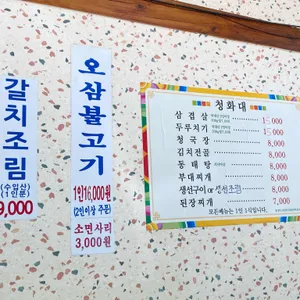 갈치조림
(수입산)
(1인분)
9,000
오삼불고기
1인16,000원
(2인이상 주문)
소면사리
3,000원
청화대
삼겹살 15,000
두루치기 15,000
청국장 8,000
김치전골 8,000
동태탕 8,000
부대찌개 8,000
생선구이 or 생선조림 8,000
된장찌개 7,000
모든메뉴는 1인 1식입니다.